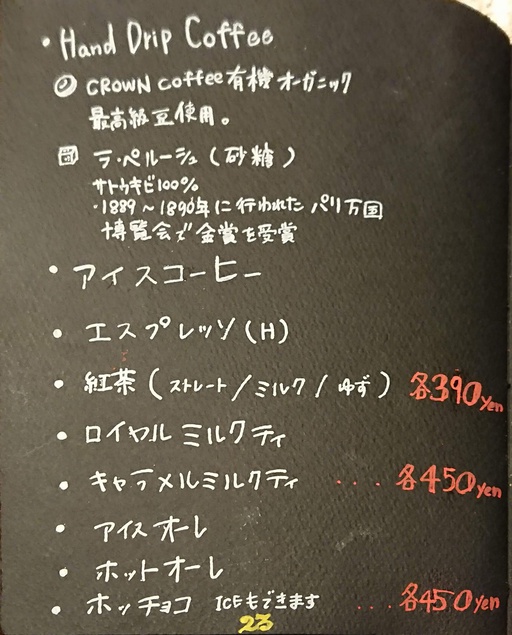 ・Hand Drip Coffee
CROWN coffee 有機オーガニック
最高級豆使用。
ラ・ペルーシュ(砂糖)
サトウキビ100%
・1889〜1890年に行われた パリ万国
博覧会で金賞を受賞
・アイスコーヒー
・エスプレッソ(H)
・紅茶(ストレート/ミルク/ゆず) 各390yen
・ロイヤルミルクティ
・キャラメルミルクティ ...各450yen
・アイスオーレ
・ホットオーレ
・ホッチョコ ICEもできます ...各450yen
23